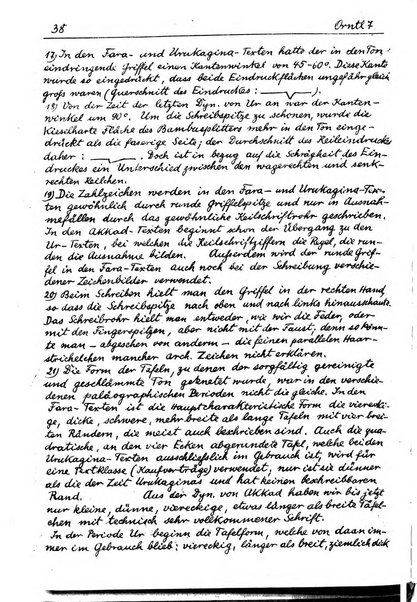 38 Orntl 7
17) In den Fara- und Urukagina-Texten hatte der in den Ton
eindringende Griffel einen Kantenwinkel von 45-60°. Diese Kante
wurde so eingedrückt, dass beide Eindruckflächen ungefähr gleich
groß waren (Querschnitt des Eindruckes: ).
18) Von der Zeit der letzten Dyn. von Ur an war der Kanten-
winkel um 90°. Um die Schreibspitze zu schonen, wurde die
kieselharte Fläche des Bambusplitters mehr in den Ton einge-
drückt als die faserige Seite; der Durchschnitt des Keileindruckes
daher: . Doch ist in bezug auf die Schrägheit des Ein-
druckes ein Unterschied zwischen den wagerechten und senk-
rechten Keilchen.
19) Die Zahlzeichen werden in den Fara- und Urukagina-Tex-
ten gewöhnlich durch runde Griffelspitze und nur in Ausnah-
mefällen durch das gewöhnliche Keilschriftrohr geschrieben.
In den Akkad-Texten beginnt schon der Übergang zu den
Ur-Texten, bei welchen die Keilschriftziffern die Regel, die run-
den die Ausnahme bilden. Außerdem wird der runde Grif-
fel in den Fara-Texten auch noch bei der Schreibung verschie-
dener Zeichenbilder verwendet.
20) Beim Schreiben hielt man den Griffel in der rechten Hand,
so dass die Schreibspitze nach oben und nach links hinausschaute.
Das Schreibrohr hielt man entweder, wie wir die Feder, oder
mit den Fingerspitzen, aber nicht mit der Faust, denn so könn-
te man – abgesehen von anderm – die feinen parallelen Haar-
strichelchen mancher arch. Zeichen nicht erklären.
21) Die Form der Tafeln, zu denen der sorgfältig gereinigte
und geschlämmte Ton geknetet wurde, war in den verschie-
denen paläographischen Perioden nicht die gleiche. In den
Fara-Texten ist die Hauptcharakteristische Form die viereckı-
ge, dicke, schwere, mehr breite als lange Tafeln mit vier brei-
ten Rändern, die meist auch beschrieben sind. Auch die qua-
dratische, an den vier Ecken abgerundete Tafel, welche bei den
Urukagina-Texten ausschließlich im Gebrauch ist, wird für
eine Textklasse (Kaufverträge) verwendet, nur ist sie dünner
als die der Zeit Urukaginas und hat keinen beschreibbaren
Rand. Aus der Dyn. von Akkad haben wir bis jetzt
nur kleine, dünne, viereckige, etwas länger als breite Täfel-
chen mit technisch sehr vollkommener Schrift.
In der Periode Ur beginn die Tafelform, welche von da an im-
mer im Gebrauch blieb: viereckig, länger als breit, ziemlich dick